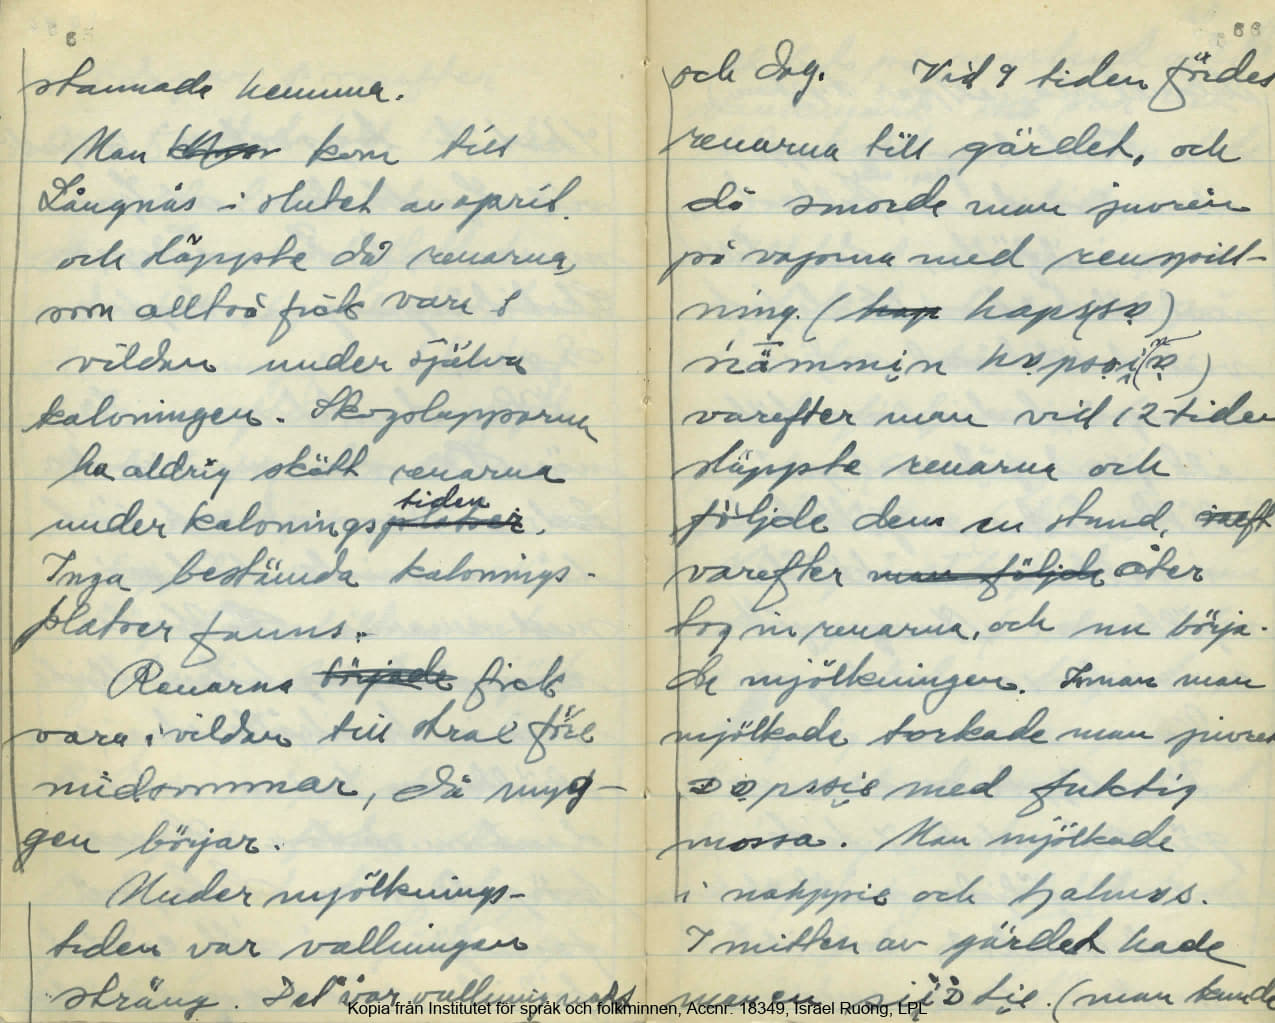 6
stannade hemma.
Man kom till
Långnäs i slutet av april
och släppte då renarna,
som alltså fick vara i
vildan under själva
kalvningen. Skogslapparna
ha aldrig skött renarna
under kalvningstiden.
Inga bestämda kalvnings-
platser fanns.
Renarna började fick
vara i vildan till strax före
midsommar, då myg-
gen börjar.
Under mjölknings-
tiden var vallningen
sträng. Det var vallning natt
66
och dag. Vid 9 tiden fördes
renarna till gärdet, och
då smorde man juvren
på vajorna med renspill-
ning. (
varefter man vid 12-tiden
släppte renarna och
följde dem en stund,
varefter man följde åter
tog in renarna, och nu börja-
de mjölkningen. Innan man
mjölkade torkade man juvret
med fuktig
mossa. Man mjölkade
i nahppie och
I mitten av gärdet hade
man en (man kunde
Kopia från Institutet för språk och folkminnen, Accnr: 18349, Israel Ruong, LPL